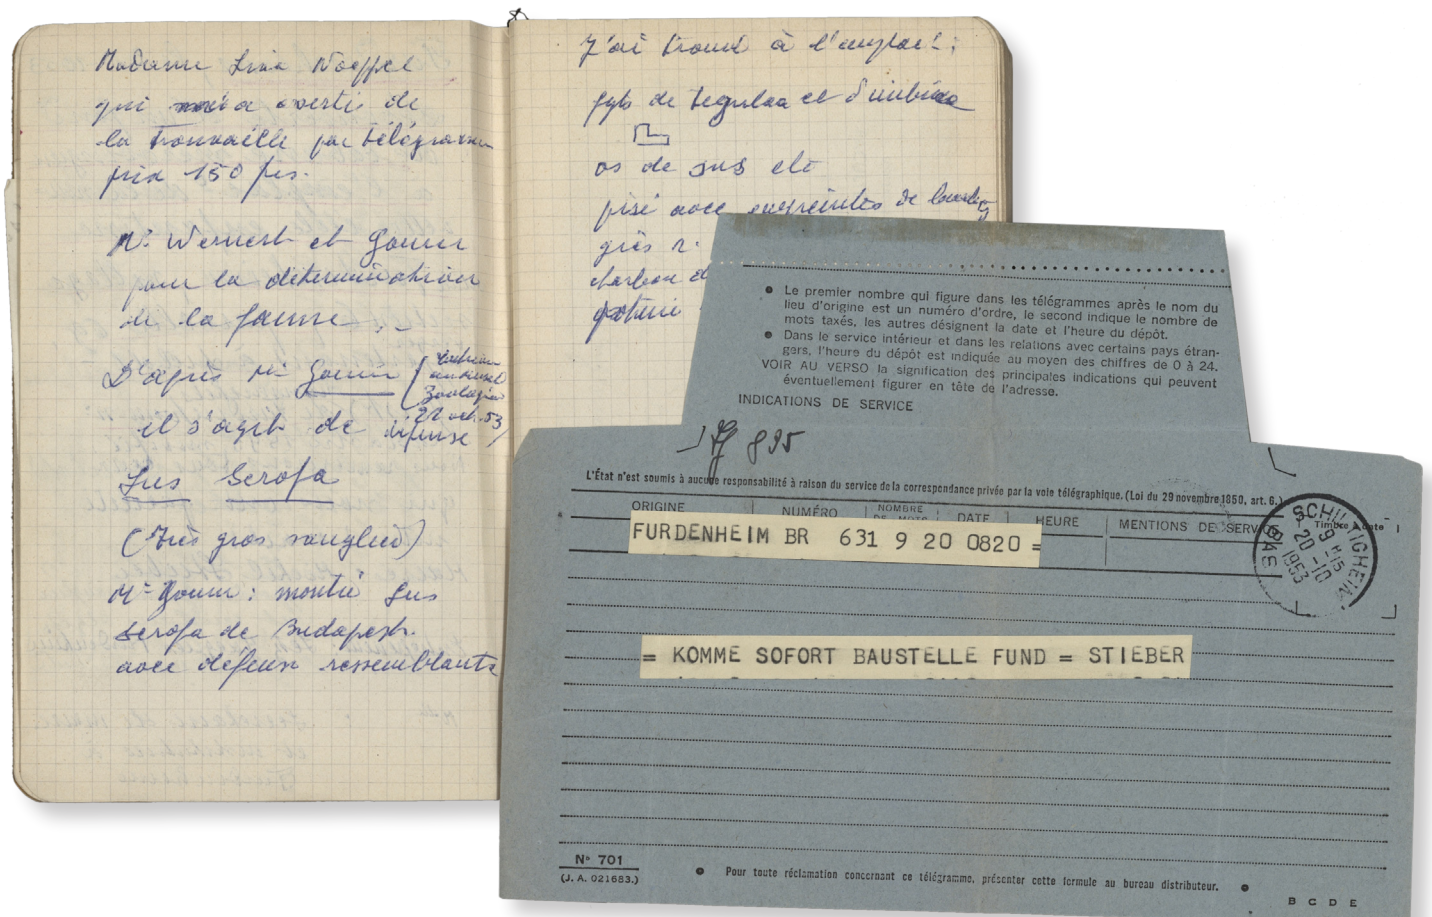 Madame Lina Noeppel
qui m'a averti de
la trouvaille par télégramme
prix 150 frs.
Mr. Wernert et Gouin
pour la détermination
de la faune
D'après Mr Gouin
Zoologique
22 oct. 53
il s'agit de défense
Sus Scrofa
(Très gros sanglier)
Mr Gouin: montré Sus
Scrofa de Budapest.
avec défenses ressemblants
J'ai trouvé à l'emplac!:
fgts de tegulaa et d'imbricaa
os de sus etc
pisé avec empreintes de
grès r.
charbon d
poterie
Le premier nombre qui figure dans les télégrammes après le nom du
lieu d'origine est un numéro d'ordre, le second indique le nombre de
mots taxés, les autres désignent la date et l'heure du dépôt.
Dans le service intérieur et dans les relations avec certains pays étran-
gers, l'heure du dépôt est indiquée au moyen des chiffres de 0 à 24.
VOIR AU VERSO la signification des principales indications qui peuvent
éventuellement figurer en tête de l'adresse.
INDICATIONS DE SERVICE
L'État n'est soumis à aucune responsabilité à raison du service de la correspondance privée par la voie télégraphique. (Loi du 29 novembre 1850, art. 6.)
ORIGINE NUMÉRO NOMBRE DE MOTS DATE HEURE MENTIONS DE SERVICE Timbre à date
FURDENHEIM BR 631 9 20 0820 =
SCHILTIGHEIM
9 H 15
20 - 10
1953
BAS
= KOMME SOFORT BAUSTELLE FUND = STIEBER
N° 701
(J. A. 021683.)
Pour toute réclamation concernant ce télégramme, présenter cette formule au bureau distributeur.
B C D E